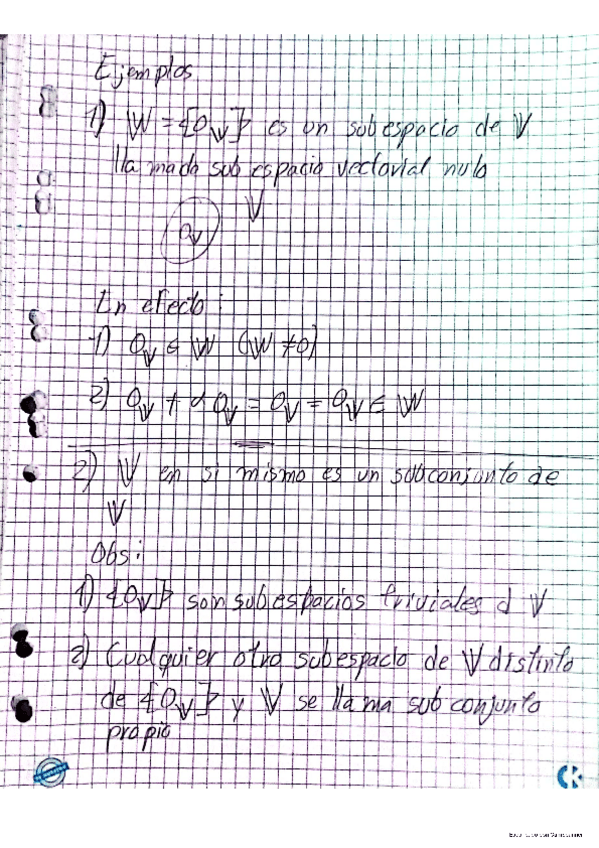 Ejemplos
1) W = {0_V} es un subespacio de V
llamado sub espacio vectorial nulo
V
0_V
En efecto:
1) 0_V ∈ W (W ≠ 0)
2) 0_V + α 0_V = 0_V = 0_V ∈ W
2) V en si mismo es un subconjunto de
V
Obs:
1) {0_V} son subespacios triviales d V
2) Cualquier otro subespacio de V distinto
de {0_V} y V se llama sub conjunto
propio